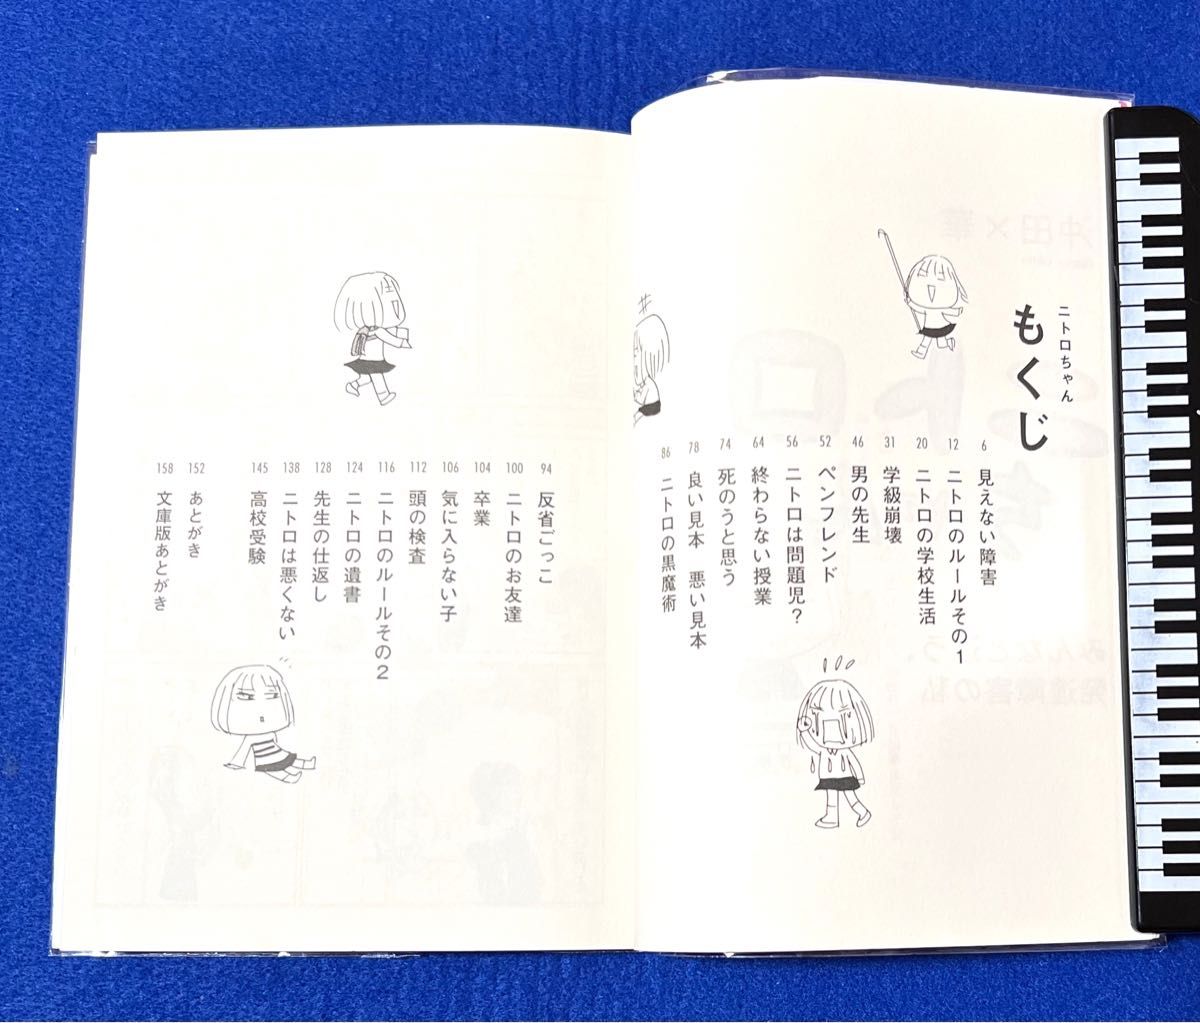 ニトロちゃん
もくじ
6 見えない障害
12 ニトロのルールその1
20 ニトロの学校生活
31 学級崩壊
46 男の先生
52 ペンフレンド
56 ニトロは問題児?
64 終わらない授業
74 死のうと思う
78 良い見本 悪い見本
86 ニトロの黒魔術
94 反省ごっこ
100 ニトロのお友達
104 卒業
106 気に入らない子
112 頭の検査
116 ニトロのルールその2
124 ニトロの遺書
128 先生の仕返し
138 ニトロは悪くない
145 高校受験
152 あとがき
158 文庫版あとがき
沖田×華
ニトロ
みんなと違う、
発達障害の私